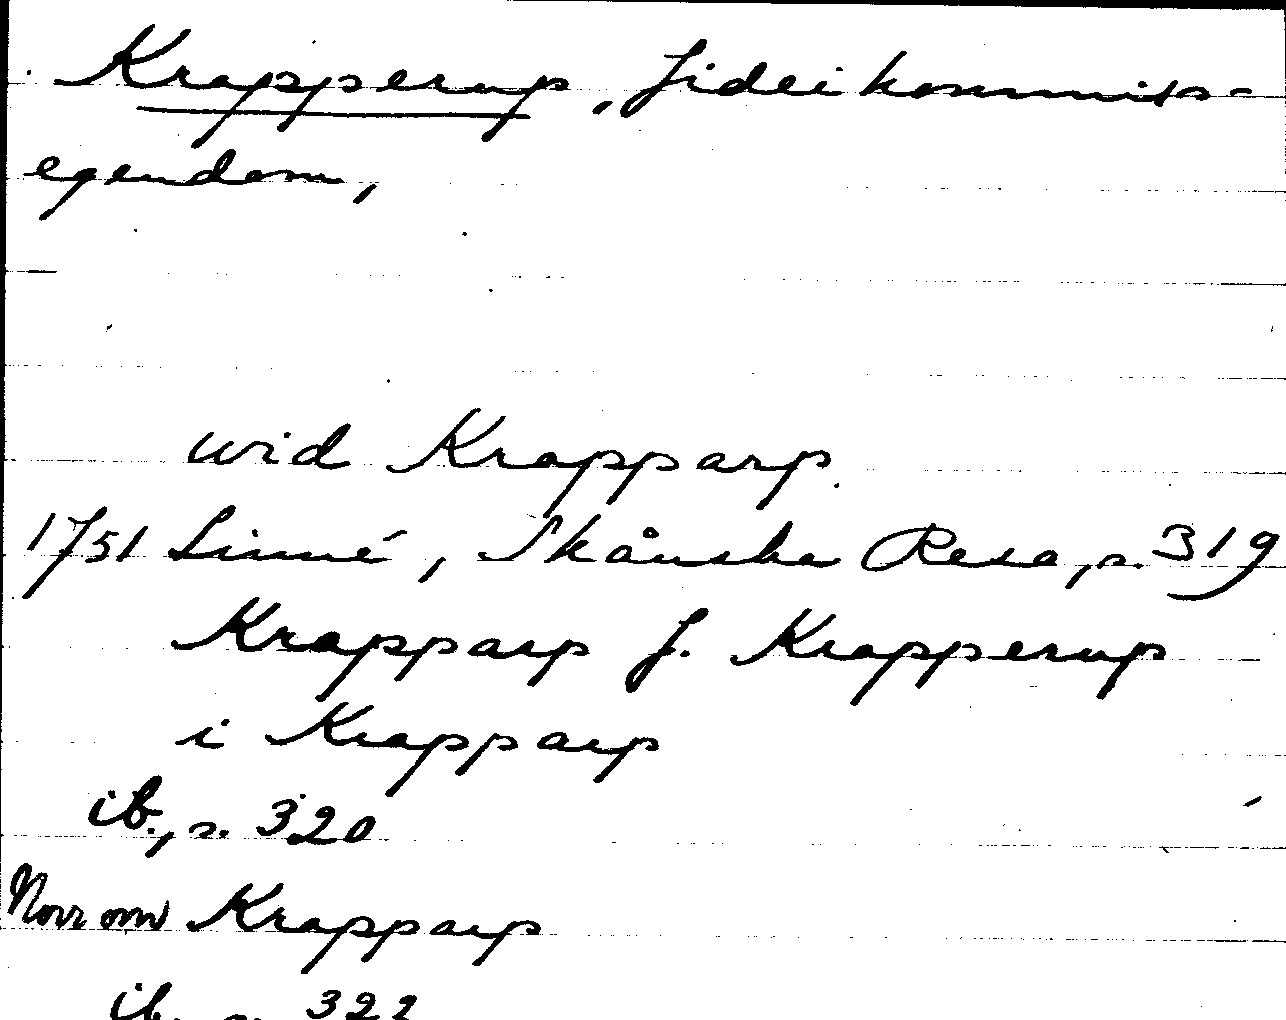 Krapperup, fideikommiss-
egendom,
wid Krapparp.
1751 Linné, Skånska Resa, s. 319
Krapparp f. Krapperup
i Krapparp
ib., s. 320
Norr om Krapparp
ib. s. 322